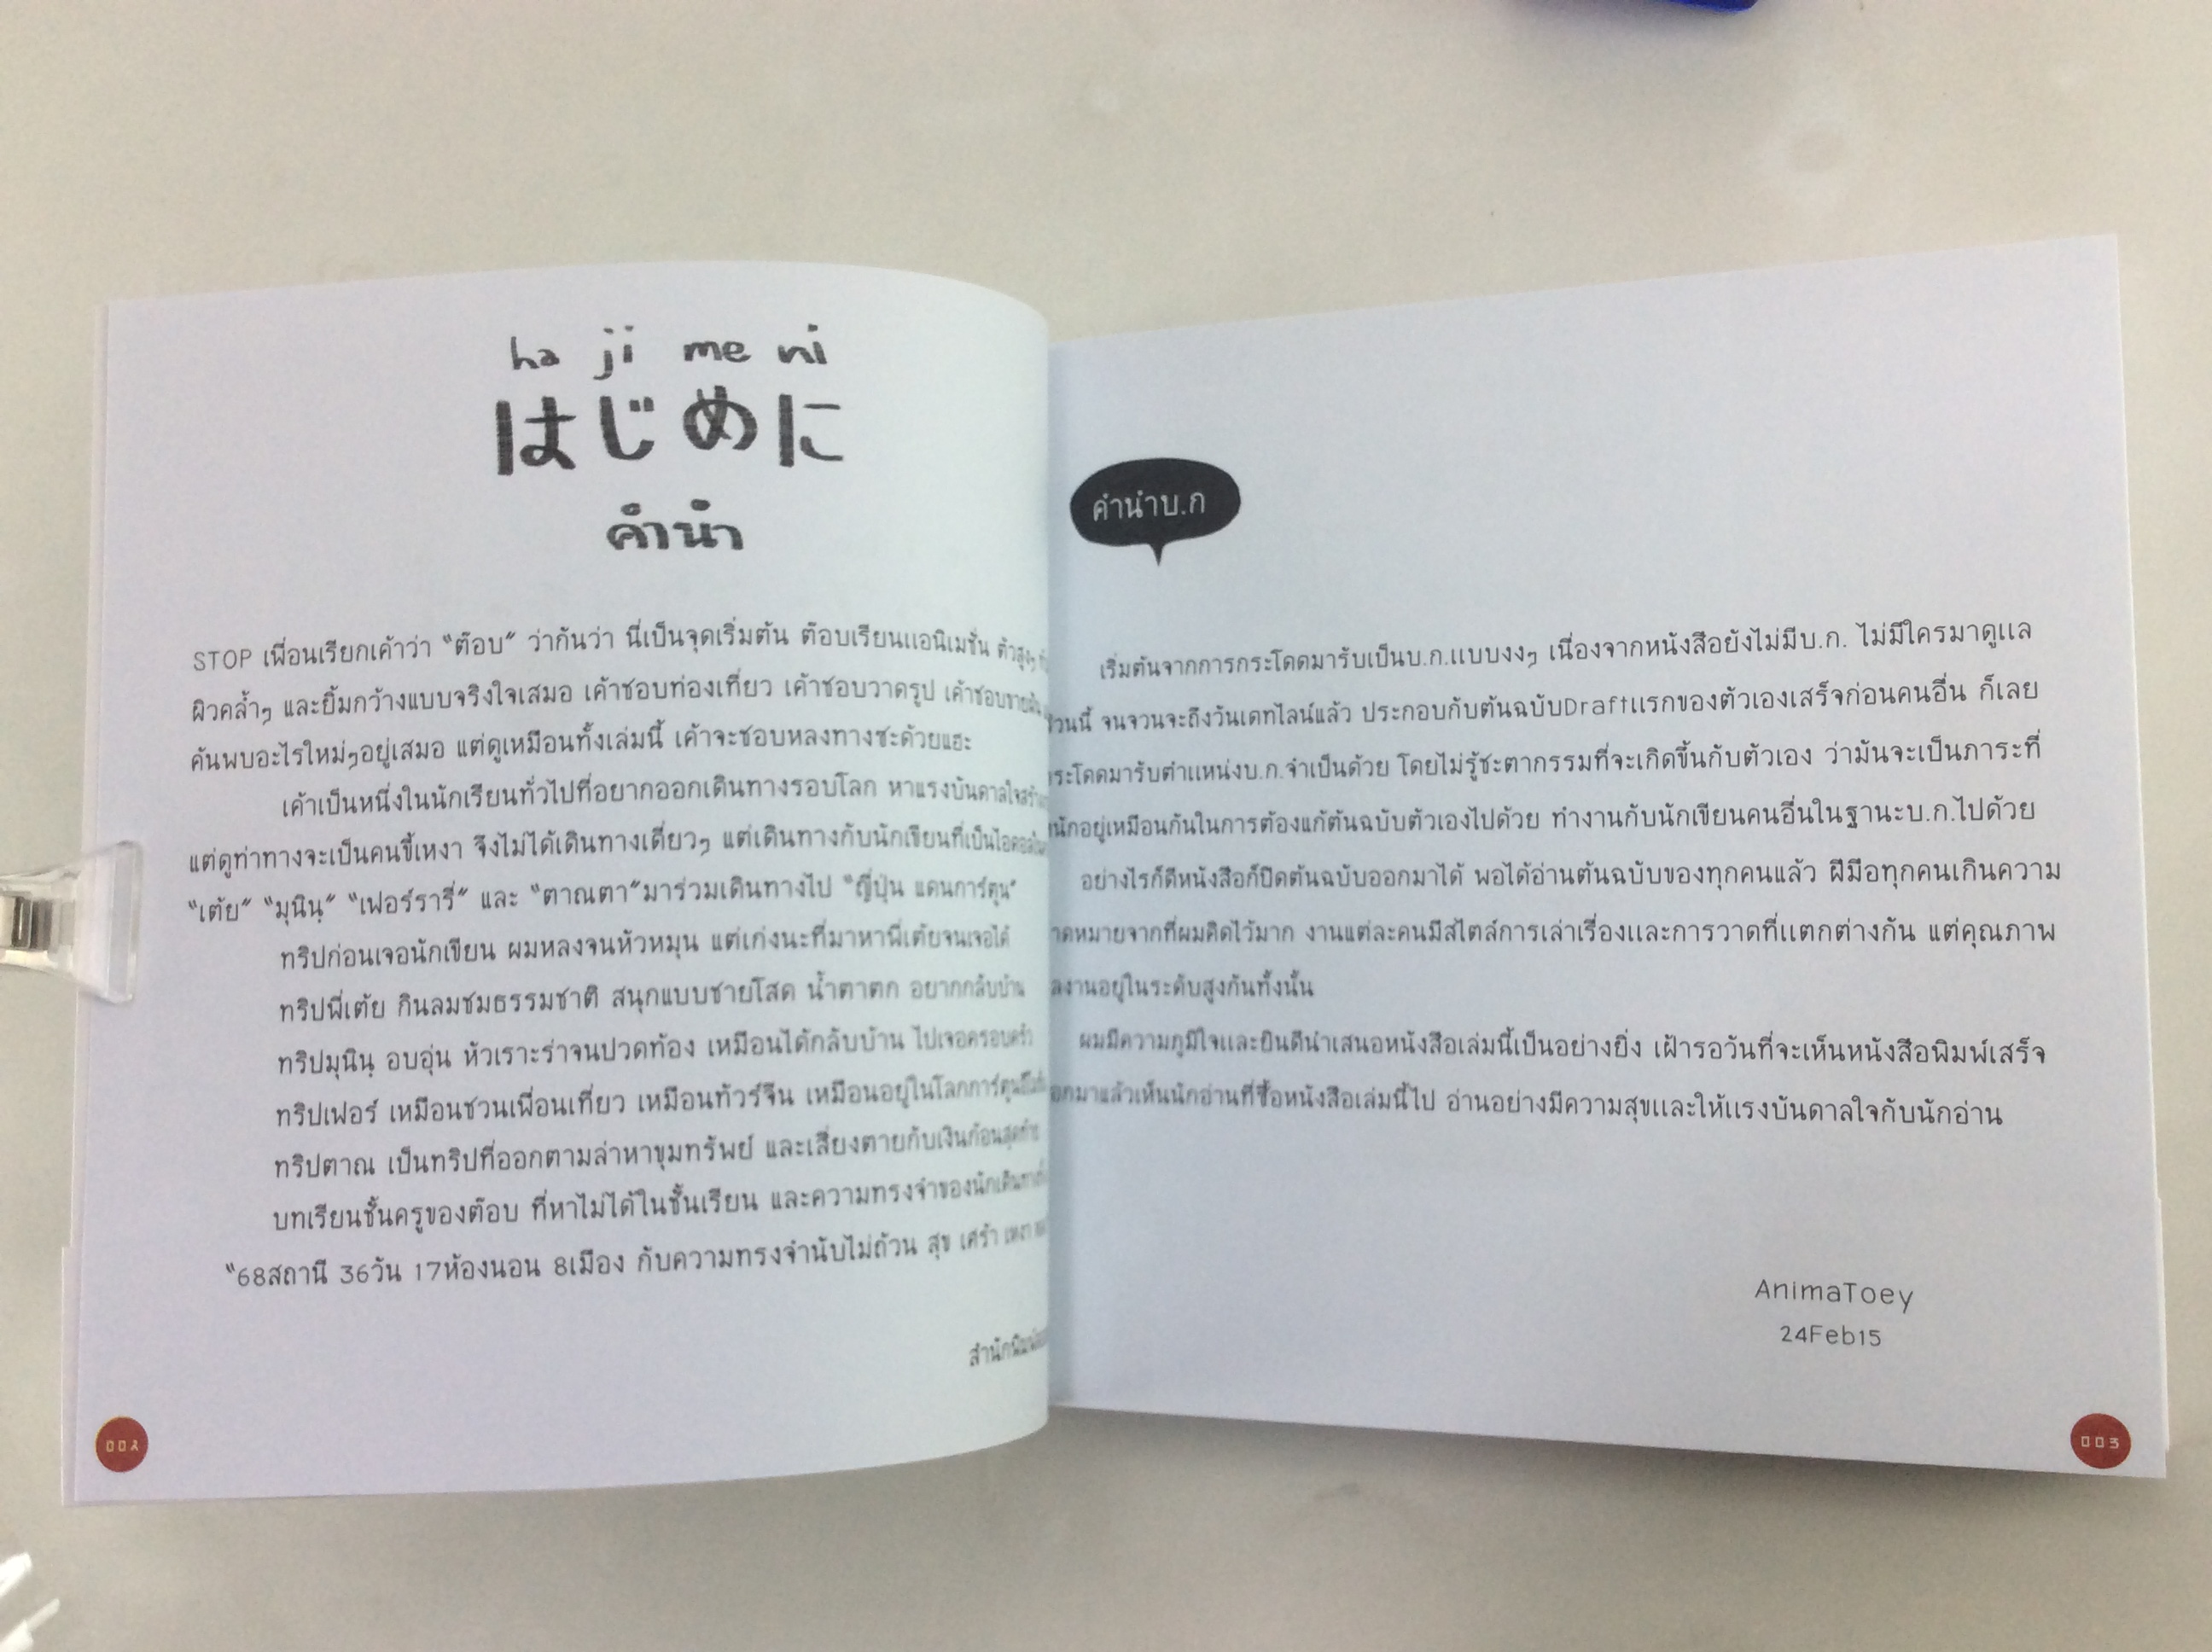 ha ji me ni
はじめに
คำนำ
STOP เพื่อนเรียกเค้าว่า “ต๊อบ” ว่ากันว่า นี่เป็นจุดเริ่มต้น ต๊อบเรียนแอนิเมชั่น ตัวสูงๆ
ผิวคล้ำๆ และยิ้มกว้างแบบจริงใจเสมอ เค้าชอบท่องเที่ยว เค้าชอบวาดรูป เค้าชอบ
ค้นพบอะไรใหม่ๆอยู่เสมอ แต่ดูเหมือนทั้งเล่มนี้ เค้าจะชอบหลงทางซะด้วยแฮะ
เค้าเป็นหนึ่งในนักเรียนทั่วไปที่อยากออกเดินทางรอบโลก หาแรงบันดาลใจ
แต่ดูท่าทางจะเป็นคนขี้เหงา จึงไม่ได้เดินทางเดี่ยวๆ แต่เดินทางกับนักเขียนที่เป็น
“เต้ย” “มุนินฺ” “เฟอร์รารี่” และ “ตาณตา”มาร่วมเดินทางไป “ญี่ปุ่น แดนการ์ตูน”
ทริปก่อนเจอนักเขียน ผมหลงจนหัวหมุน แต่เก่งนะที่มาหาพี่เต้ยจนเจอได้
ทริปพี่เต้ย กินลมชมธรรมชาติ สนุกแบบชายโสด น้ำตาตก อยากกลับบ้าน
ทริปมุนินฺ อบอุ่น หัวเราะร่าจนปวดท้อง เหมือนได้กลับบ้าน ไปเจอครอบครัว
ทริปเฟอร์ เหมือนชวนเพื่อนเที่ยว เหมือนทัวร์จีน เหมือนอยู่ในโลกการ์ตูน
ทริปตาณ เป็นทริปที่ออกตามล่าหาขุมทรัพย์ และเสี่ยงตายกับเงินก้อนสุดท้าย
บทเรียนชั้นครูของต๊อบ ที่หาไม่ได้ในชั้นเรียน และความทรงจำของนักเดินทาง
“68สถานี 36วัน 17ห้องนอน 8เมือง กับความทรงจำนับไม่ถ้วน สุข เศร้า เหงา
สำนักพิมพ์
002
คำนำบ.ก
เริ่มต้นจากการกระโดดมารับเป็นบ.ก.แบบงงๆ เนื่องจากหนังสือยังไม่มีบ.ก. ไม่มีใครมาดูแล
นี้ จนจวนจะถึงวันเดทไลน์แล้ว ประกอบกับต้นฉบับDraftแรกของตัวเองเสร็จก่อนคนอื่น ก็เลย
ระโดดมารับตำแหน่งบ.ก.จำเป็นด้วย โดยไม่รู้ชะตากรรมที่จะเกิดขึ้นกับตัวเอง ว่ามันจะเป็นภาระที่
นักอยู่เหมือนกันในการต้องแก้ต้นฉบับตัวเองไปด้วย ทำงานกับนักเขียนคนอื่นในฐานะบ.ก.ไปด้วย
อย่างไรก็ดีหนังสือก็ปิดต้นฉบับออกมาได้ พอได้อ่านต้นฉบับของทุกคนแล้ว ฝีมือทุกคนเกินความ
าดหมายจากที่ผมคิดไว้มาก งานแต่ละคนมีสไตล์การเล่าเรื่องและการวาดที่แตกต่างกัน แต่คุณภาพ
ลงานอยู่ในระดับสูงกันทั้งนั้น
ผมมีความภูมิใจและยินดีนำเสนอหนังสือเล่มนี้เป็นอย่างยิ่ง เฝ้ารอวันที่จะเห็นหนังสือพิมพ์เสร็จ
อกมาแล้วเห็นนักอ่านที่ซื้อหนังสือเล่มนี้ไป อ่านอย่างมีความสุขและให้แรงบันดาลใจกับนักอ่าน
AnimaToey
24Feb15
003